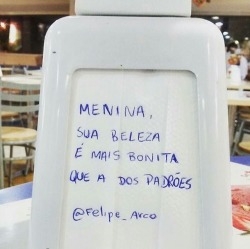 MENINA,
SUA BELEZA
É MAIS BONITA
QUE A DOS PADRÕES
@Felipe_Arco